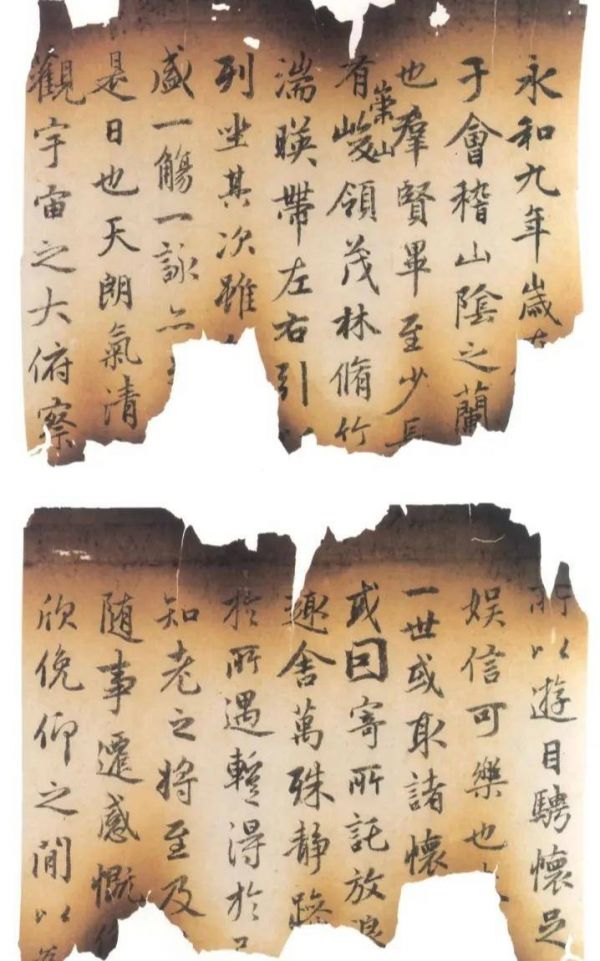 永和九年歲
于會稽山陰之蘭
也羣賢畢至少長
有崇山峻領茂林脩竹
湍暎帶左右引以
列坐其次雖
盛一觴一詠亦
是日也天朗氣清
觀宇宙之大俯察
所以遊目騁懷足
娛信可樂也
一世或取諸懷
或因寄所託放浪
趣舍萬殊靜躁
於所遇暫得於
知老之將至及
隨事遷感慨係
欣俛仰之閒以